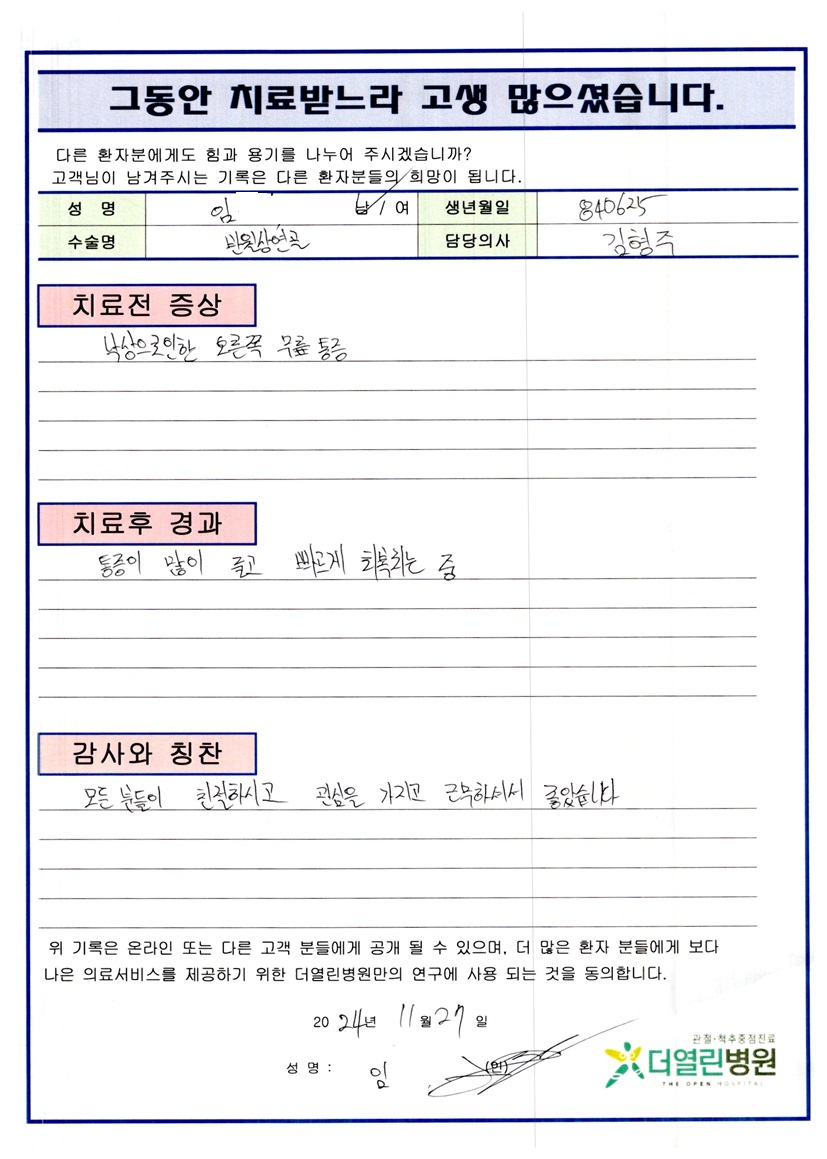 그동안 치료받느라 고생 많으셨습니다.
다른 환자분에게도 힘과 용기를 나누어 주시겠습니까?
고객님이 남겨주시는 기록은 다른 환자분들의 희망이 됩니다.
성 명 임 남 / 여 생년월일 840625
수술명 반월상연골 담당의사 김형주
치료전 증상
낙상으로인한 오른쪽 무릎 통증
치료후 경과
통증이 많이 줄고 빠르게 회복하는 중
감사와 칭찬
모든 분들이 친절하시고 관심을 가지고 근무하셔서 좋았습니다
위 기록은 온라인 또는 다른 고객 분들에게 공개 될 수 있으며, 더 많은 환자 분들에게 보다
나은 의료서비스를 제공하기 위한 더열린병원만의 연구에 사용 되는 것을 동의합니다.
2024년 11월 27일
성 명 : 임 (인)
관절·척추중점진료
더열린병원
THE OPEN HOSPITAL